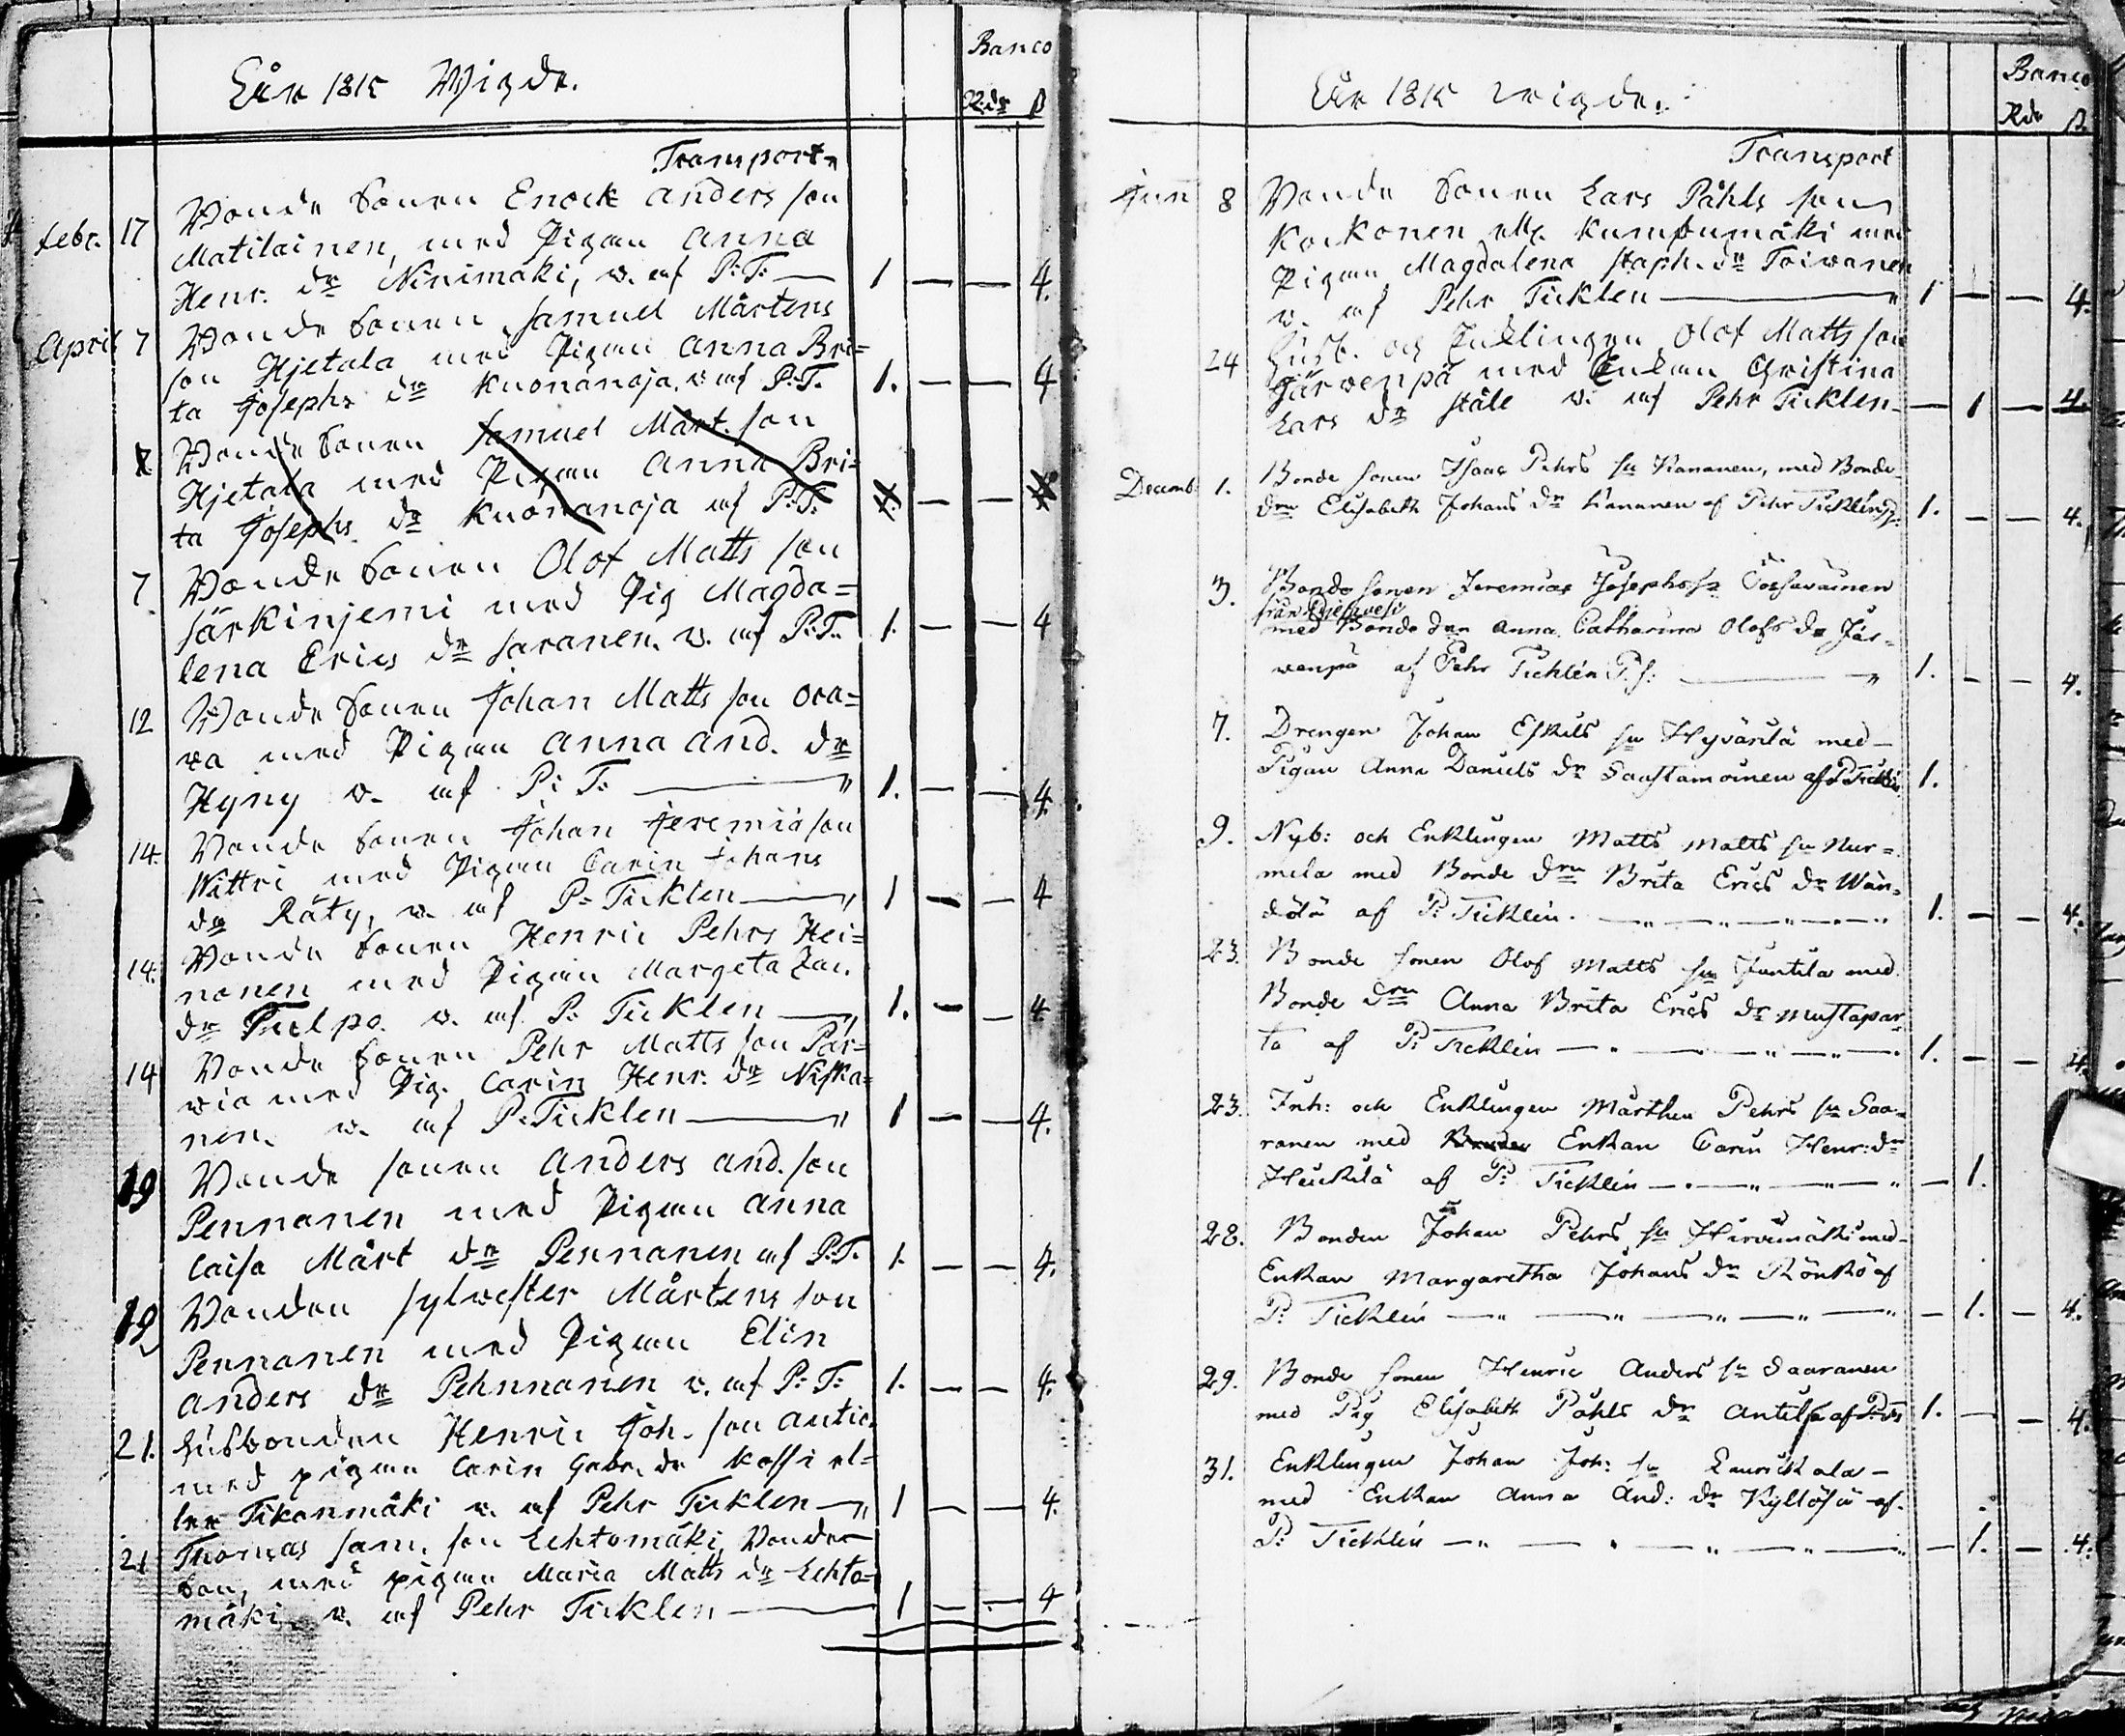 Banco
Åhr 1815 Wigde.
Rdr ß
Transport
Febr. 17 Bonde Sonen Enock Anders son
Matilainen, med Pigan Anna
Henr. dr Ninimäki, v. af P: T: 1 — — 4.
April 7 Bonde Sonen Samuel Mårtens
son Hjetala med Pigan Anna Bri=
ta Josephs dr Kuonanoja. v af P: T. 1. — — 4
Bonde Sonen Samuel Mårt. son
Hjetala med Pigan Anna Bri=
ta Josephs dr Kuonanoja af P: T.
7 Bonde Sonen Olof Matts son
Särkinjemi med Pig Magda=
lena Erics dr Saranen. v. af P: T. 1. — — 4
12 Bonde Sonen Johan Matts son Ora=
va med Pigan Anna And. dr
Hyny v. af P: T. 1. — — 4.
14. Bonde Sonen Johan Jeremiä son
Wittri med Pigan Carin Johans
dr Räty, v. af P. Ticklen 1 — — 4
14. Bonde Sonen Henric Pehrs Hei=
nonen med Pigan Margeta Zac.
dr Puelpo. v. af P. Ticklen 1. — — 4
14 Bonde Sonen Pehr Matts son Pär=
via med Pig. Carin Henr. dr Niska=
nen. v. af P. Ticklen 1 — — 4.
19 Bonde sonen Anders And. son
Pennanen med Pigan Anna
Caisa Mårt dr Pennanen af P: T. 1. — — 4.
19 Bonden Sylvester Mårtens son
Pennanen med Pigan Elin
Anders dr Pehnnanen v. af P: T: 1. — — 4.
21. Husbonden Henric Joh. son Antic.
med pigan Carin Gabr. dr Kossi el=
ler Tikanmäki v. af Pehr Ticklen 1 — — 4.
21 Thomas Sam. son Lehtomäki, Bonde
Son, med pigan Maria Matts dr Lehto=
mäki. v. af Pehr Ticklen 1 — — 4
Banco
Åhr 1815 wigde.
Rdr ß.
Transport
Jun 8 Bonde Sonen Lars Påhls son
Korkonen ell. Kumpumäki med
Pigan Magdalena Staph. dr Toivanen
v. af Pehr Ticklen 1 — — 4.
24 Husb. och Enklingen Olof Matts son
Järvenpä med Enkan Christina
Lars dr Ståle v. af Pehr Ticklen — 1 — 4.
Decemb: 1. Bonde sonen Isaac Pehrs sn Kananen, med Bonde
drn Elisabeth Johans dr Kananen af Pehr Ticklén 1. — — 4.
3. Bonde sonen Jeremias Josephs sn Tossavainen
från Pjelavesi
med Bonde drn Anna Catharina Olofs dr Jär=
venpä af Pehr Ticklén 1. — — 4.
7. Drengen Johan Eskils sn Hyvärilä med
Pigan Anna Daniels dr Saastamoinen af P Tickl. 1.
9. Nyb: och Enklingen Matts Matts sn Nur=
mela med Bonde drn Brita Erics dr Wän=
dölä af P: Ticklén. 1. — — 4.
23. Bonde sonen Olof Matts sn Juntila med
Bonde drn Anna Brita Erics dr Mustapar=
ta af P: Ticklén 1. — — 4.
23. Inh: och Enklingen Mårthen Pehrs sn Saa=
ranen med Enkan Carin Henr: dr
Heickilä af P: Ticklén — 1.
28. Bonden Johan Pehrs sn Hirvimäki med
Enkan Margaretha Johans dr Rönkö af
P: Ticklén — 1. — 4.
29. Bonde sonen Henric Anders sn Saaranen
med Pig Elisabeth Påhls dr Antila af 1. — — 4.
31. Enklingen Johan Joh: sn Laurickala
med Enkan Anna And: dr Kyllösä af
P: Ticklén — 1. — 4.